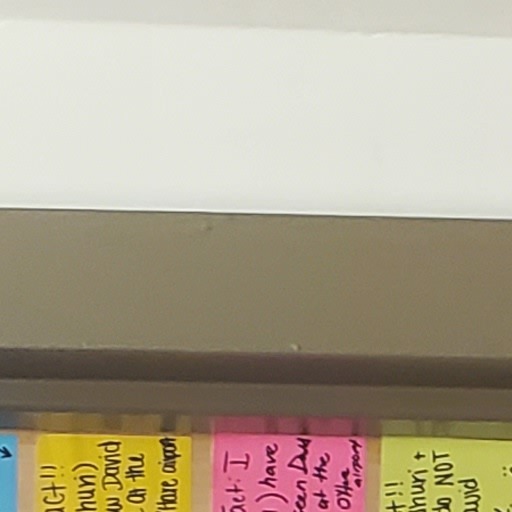 act!!
huri)
w David
at the
Hare airport
act: I
) have
seen David
at the
O'Hare
airport
t!!
dhuri +
do NOT
avid